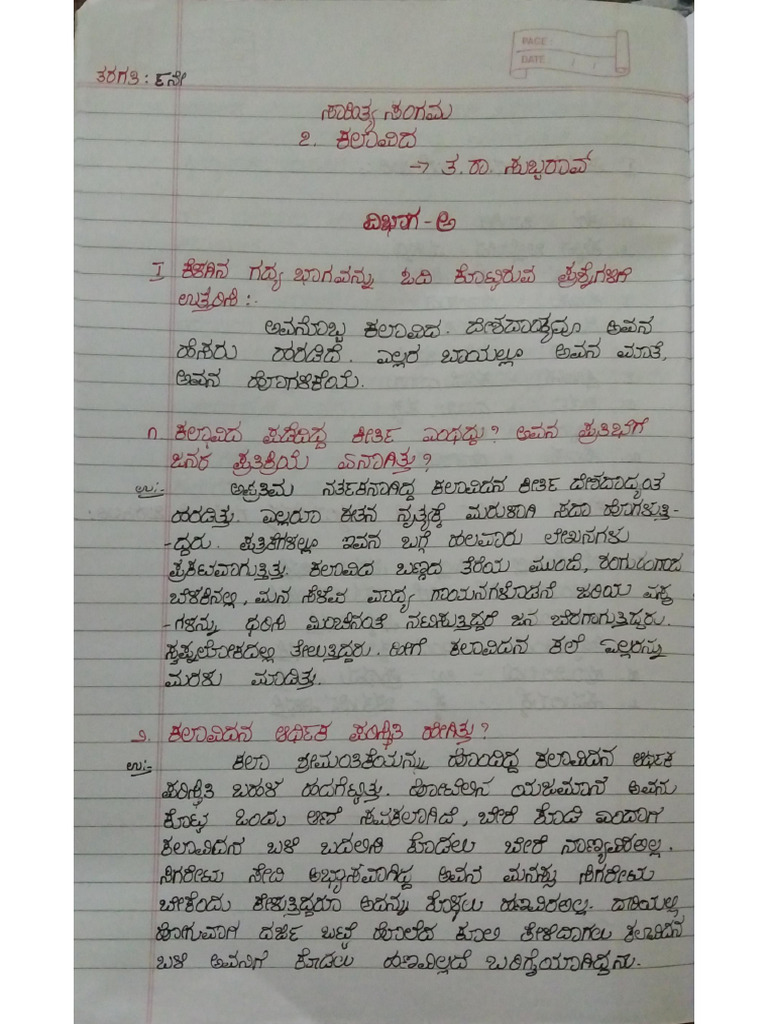 PAGE :
DATE : / /
ತರಗತಿ : ೯ನೇ
ಸಾಹಿತ್ಯ ಸಂಗಮ
೨. ಕಲಾವಿದ
→ ತ. ರಾ. ಸುಬ್ಬರಾವ್
ವಿಭಾಗ - ಅ
I ಕೆಳಗಿನ ಗದ್ಯ ಭಾಗವನ್ನು ಓದಿ ಕೊಟ್ಟಿರುವ ಪ್ರಶ್ನೆಗಳಿಗೆ
ಉತ್ತರಿಸಿ :.
ಅವನೊಬ್ಬ ಕಲಾವಿದ. ದೇಶದಾದ್ಯಂತವೂ ಅವನ
ಹೆಸರು ಹರಡಿದೆ. ಎಲ್ಲರ ಬಾಯಲ್ಲೂ ಅವನ ಮಾತೆ,
ಅವನ ಹೊಗಳಿಕೆಯೆ.
೧. ಕಲಾವಿದ ಪಡೆದಿದ್ದ ಕೀರ್ತಿ ಎಂಥದ್ದು? ಅವನ ಪ್ರತಿಭೆಗೆ
ಜನರ ಪ್ರತಿಕ್ರಿಯೆ ಏನಾಗಿತ್ತು?
ಉ:- ಅಪ್ರತಿಮ ನರ್ತಕನಾಗಿದ್ದ ಕಲಾವಿದನ ಕೀರ್ತಿ ದೇಶದಾದ್ಯಂತ
ಹರಡಿತ್ತು. ಎಲ್ಲರೂ ಈತನ ನೃತ್ಯಕ್ಕೆ ಮರುಳಾಗಿ ಸದಾ ಹೊಗಳುತ್ತಿ-
-ದ್ದರು. ಪತ್ರಿಕೆಗಳಲ್ಲೂ ಇವನ ಬಗ್ಗೆ ಹಲವಾರು ಲೇಖನಗಳು
ಪ್ರಕಟವಾಗುತ್ತಿತ್ತು. ಕಲಾವಿದ ಬಣ್ಣದ ತೆರೆಯ ಮುಂದೆ, ರಂಗುರಂಗಾದ
ಬೆಳಕಿನಲ್ಲಿ, ಮನ ಸೆಳೆವ ವಾದ್ಯ ಗಾಯನಗಳೊಡನೆ ಜರಿಯ ವಸ್ತ್ರ
-ಗಳನ್ನು ಧರಿಸಿ ಮಿಂಚಿನಂತೆ ನಟಿಸುತ್ತಿದ್ದರೆ ಜನ ಬೆರಗಾಗುತ್ತಿದ್ದರು.
ಸ್ವಪ್ನಲೋಕದಲ್ಲಿ ತೇಲುತ್ತಿದ್ದರು. ಹೀಗೆ ಕಲಾವಿದನ ಕಲೆ ಎಲ್ಲರನ್ನು
ಮರಳು ಮಾಡಿತ್ತು.
೨. ಕಲಾವಿದನ ಆರ್ಥಿಕ ಪರಿಸ್ಥಿತಿ ಹೇಗಿತ್ತು?
ಉ:- ಕಲಾ ಶ್ರೀಮಂತಿಕೆಯನ್ನು ಹೊಂದಿದ್ದ ಕಲಾವಿದನ ಆರ್ಥಿಕ
ಪರಿಸ್ಥಿತಿ ಬಹಳ ಹದಗೆಟ್ಟಿತ್ತು. ಹೋಟೆಲಿನ ಯಜಮಾನ ಅವನು
ಕೊಟ್ಟ ಒಂದು ಆಣೆ ಸವಕಲಾಗಿದೆ, ಬೇರೆ ಕೊಡಿ ಎಂದಾಗ
ಕಲಾವಿದನ ಬಳಿ ಬದಲಿಸಿ ಕೊಡಲು ಬೇರೆ ನಾಣ್ಯವಿರಲಿಲ್ಲ.
ಸಿಗರೇಟು ಸೇದಿ ಅಭ್ಯಾಸವಾಗಿದ್ದ ಅವನ ಮನಸ್ಸು ಸಿಗರೇಟು
ಬೇಕೆಂದು ಕೇಳುತ್ತಿದ್ದರೂ ಅದನ್ನು ಕೊಳ್ಳಲು ಹಣವಿರಲಿಲ್ಲ. ದಾರಿಯಲ್ಲಿ
ಹೋಗುವಾಗ ದರ್ಜಿ ಬಟ್ಟೆ ಹೊಲೆದ ಕೂಲಿ ಕೇಳಿದಾಗಲು ಕಲಾವಿದನ
ಬಳಿ ಅವನಿಗೆ ಕೊಡಲು ಹಣವಿಲ್ಲದೆ ಬರಿಗೈಯಾಗಿದ್ದನು.